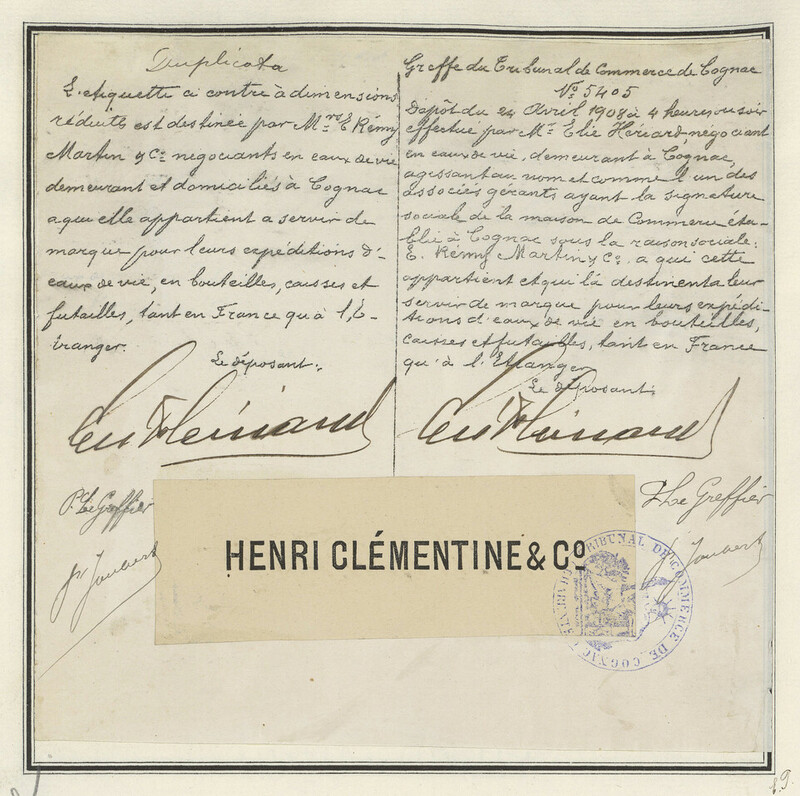 Duplicata
L'etiquette ci contre à dimensions
réduits est destinée par Mrs E. Rémy
Martin y Cie negociants en eaux de vie
demeurant et domiciliés à Cognac
a qui elle appartient a servir de
marque pour leurs expéditions d'-
eaux de vie, en bouteilles, caisses et
futailles, tant en France qu'à l'É-
tranger.
Le déposant:
P. Le Greffier
Greffe du Tribunal de Commerce de Cognac
No 5405
Dépôt du 24 Avril 1908 à 4 heures du soir
effectué par Mr Elie Hériard, négociant
en eaux de vie, demeurant à Cognac,
agissant au nom et comme l'un des
associés gérants ayant la signature
sociale de la maison de Commerce éta-
blie à Cognac sous la raison sociale:
E. Rémy Martin y Co. a qui cette
appartient et qui la destinent a leur
servir de marque pour leurs expédi-
tions d'eaux de vie en bouteilles,
caisses et futailles, tant en France
qu'à l'Etranger
Le déposant:
P. Le Greffier
HENRI CLÉMENTINE & Co
TRIBUNAL DE COMMERCE DE COGNAC